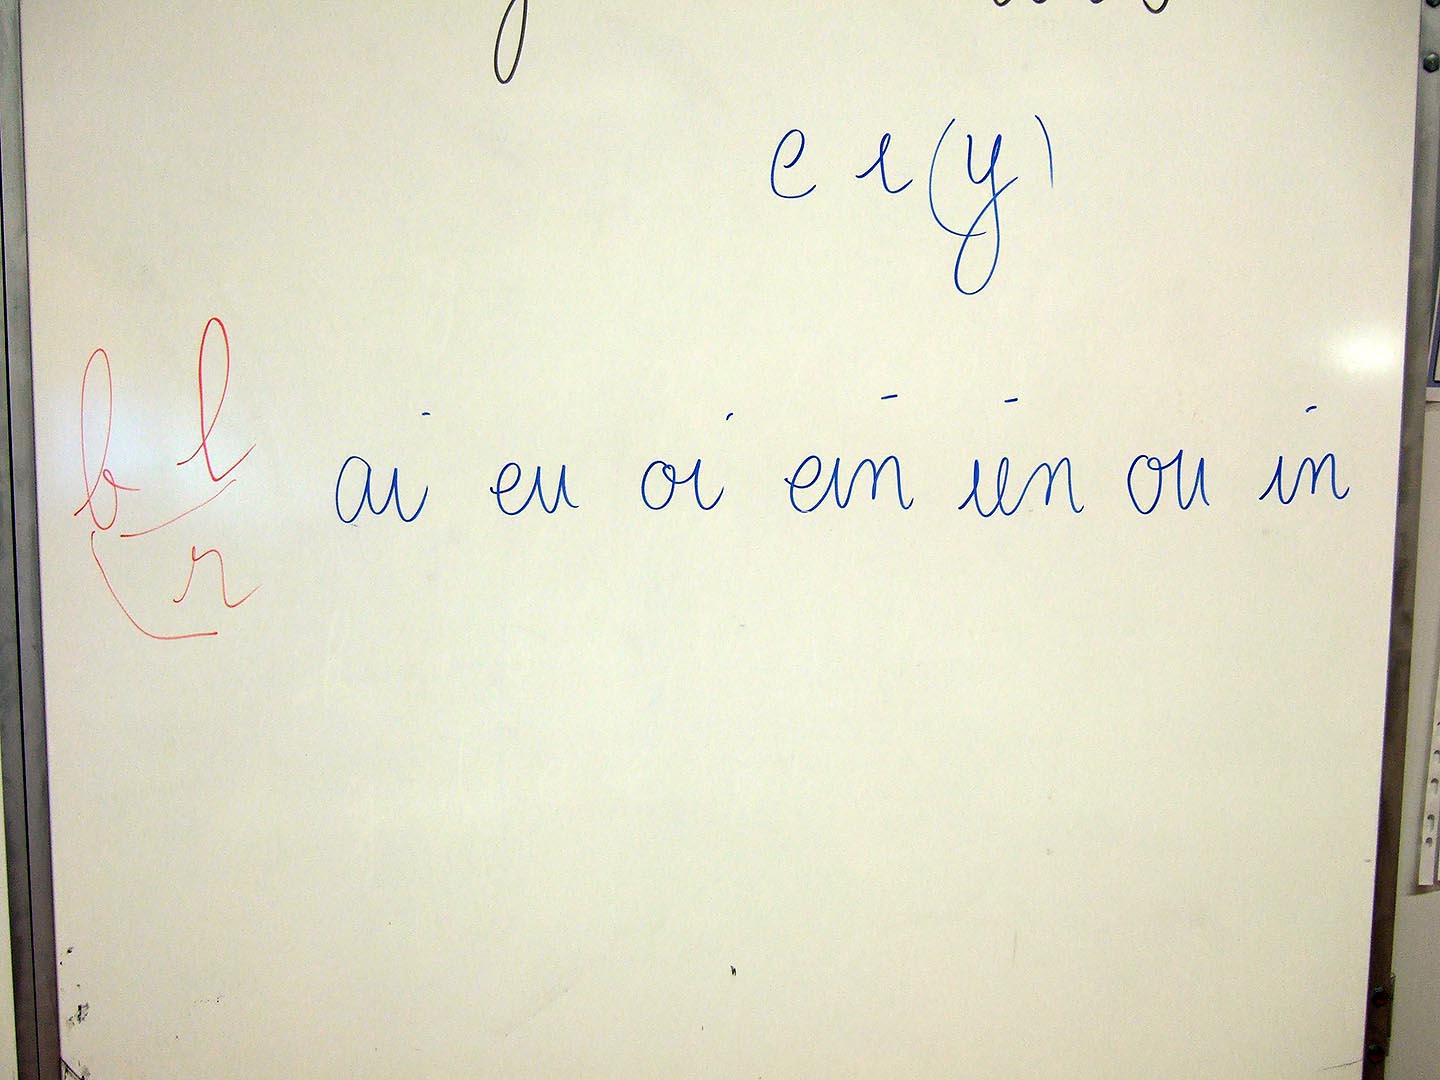 e i (y)
b l ai eu oi ein ien ou in
r